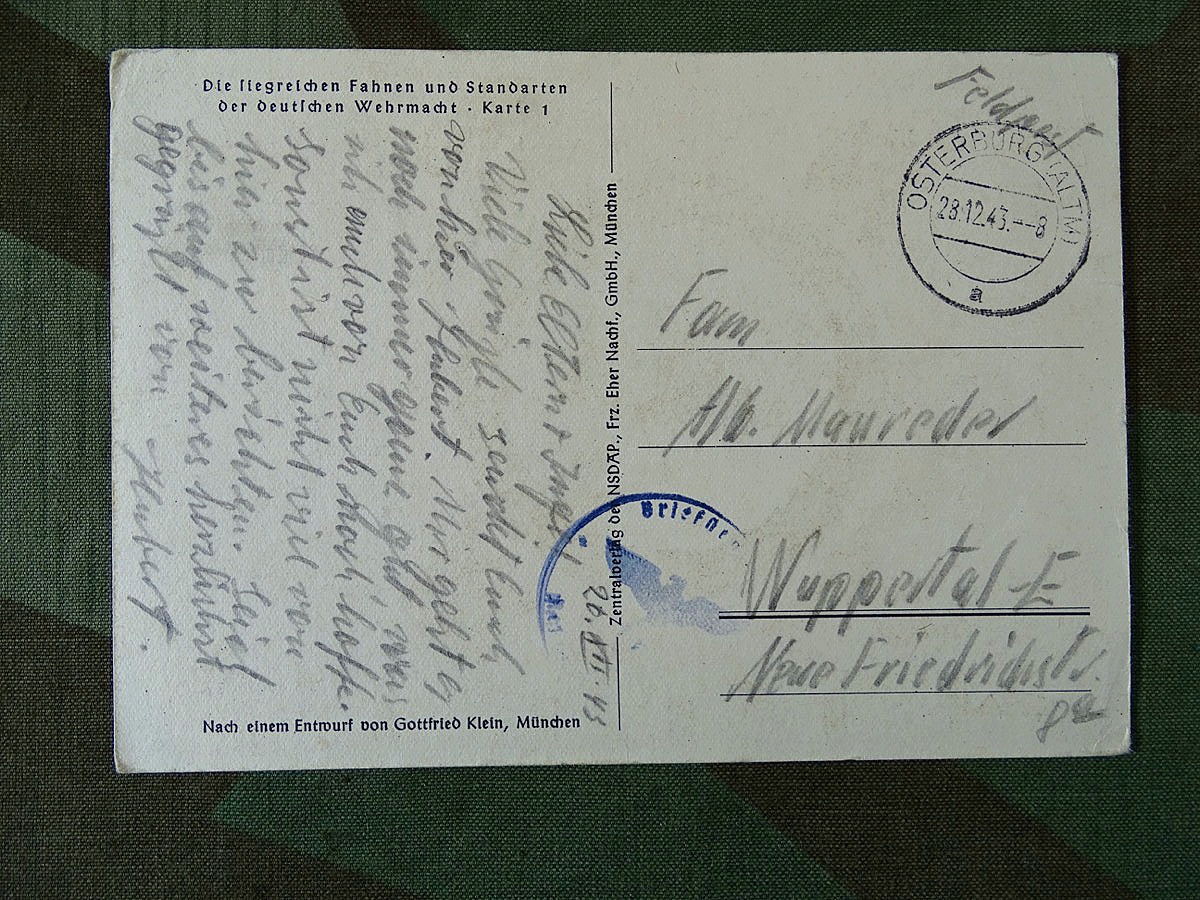 Die siegreichen Fahnen und Standarten
der deutschen Wehrmacht · Karte 1
26. XII. 43
Liebe Eltern +
Viele Grüße sendet Euch
von hier Hubert. Mir geht es
noch immer ganz gut was
ich auch von Euch noch hoffe.
Sonst ist nicht viel von
hier zu berichten. Seid
bis auf weiteres herzlichst
gegrüßt von Hubert.
Nach einem Entwurf von Gottfried Klein, München
Zentralverlag der NSDAP., Frz. Eher Nachf., GmbH., München
Feldpost
OSTERBURG (ALTM)
28.12.43.--8
a
Fam
Alb. Maureder
Wuppertal-E
Neue Friedrichstr.